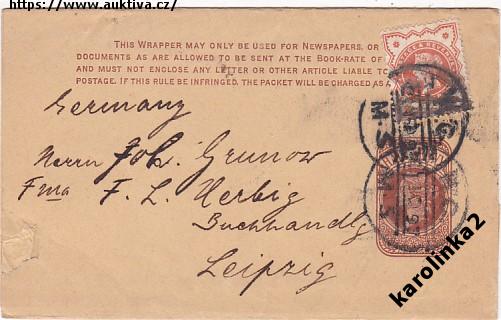 https://www.auktiva.cz/
THIS WRAPPER MAY ONLY BE USED FOR NEWSPAPERS, OR
DOCUMENTS AS ARE ALLOWED TO BE SENT AT THE BOOK-RATE OF
AND MUST NOT ENCLOSE ANY LETTER OR OTHER ARTICLE LIABLE TO
POSTAGE. IF THIS RULE BE INFRINGED, THE PACKET WILL BE CHARGED AS A
Germany
Herrn Joh. Grunow
Fma F. L. Herbig
Buchhandlg
Leipzig
karolinka2